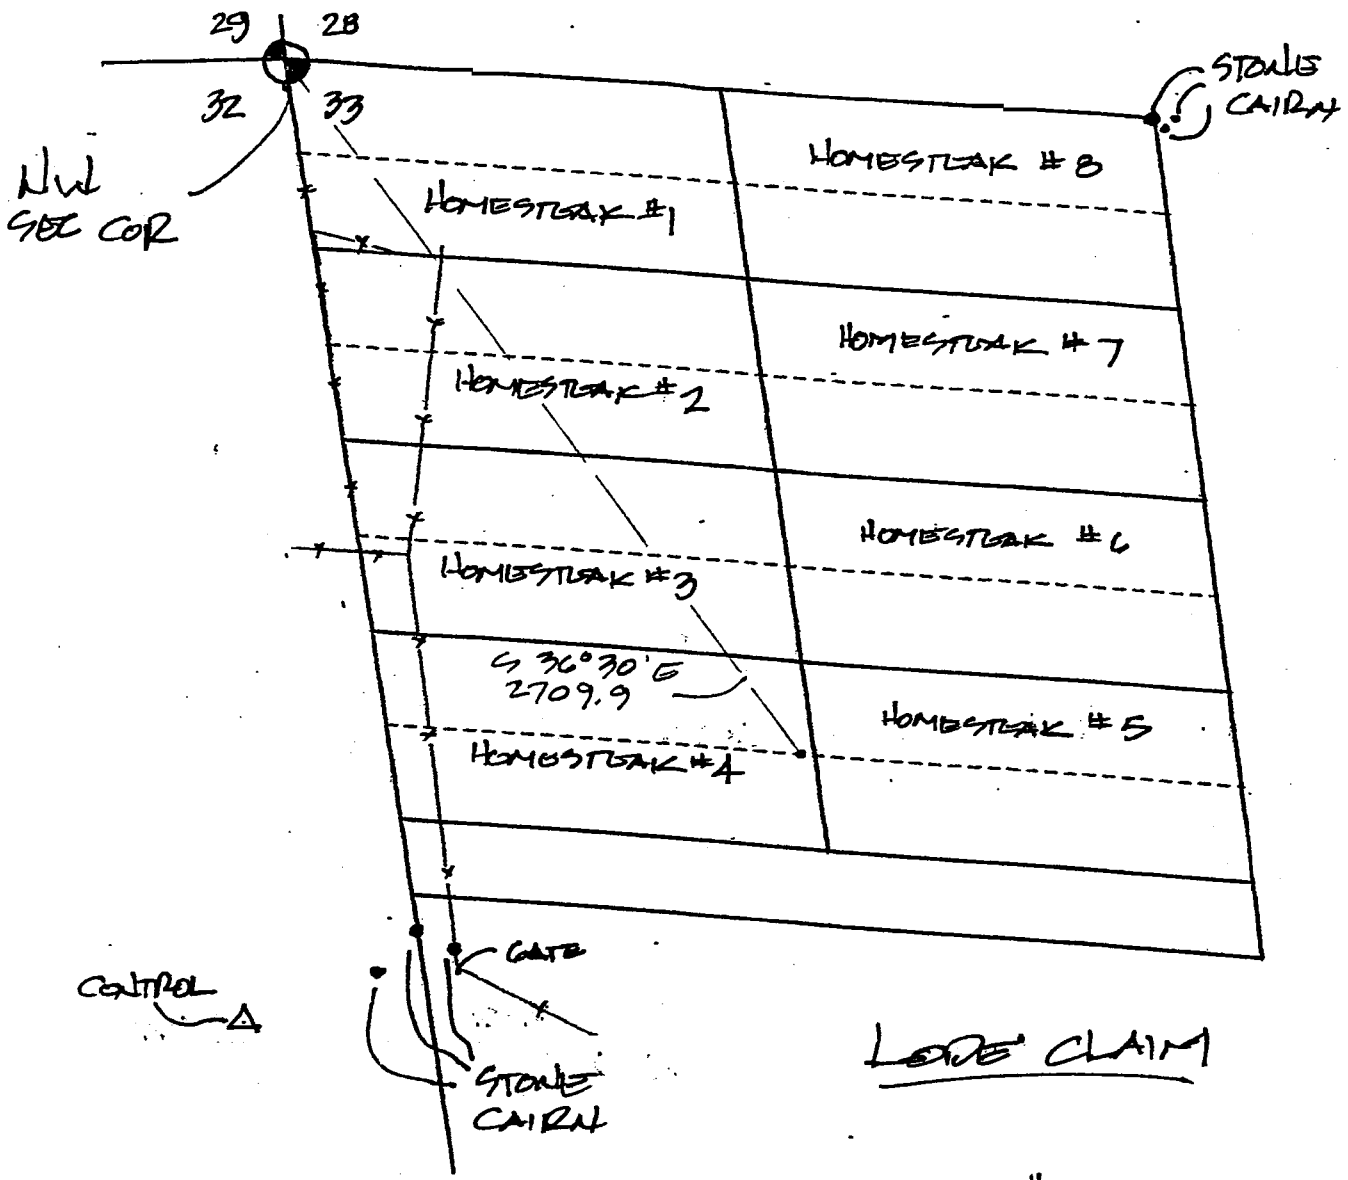 29 28
32 33
NW
SEC COR
STONE
CAIRN
HOMESTEAK #8
HOMESTEAK #1
HOMESTEAK #7
HOMESTEAK #2
HOMESTEAK #6
HOMESTEAK #3
S 36°30'E
2709.9
HOMESTEAK #5
HOMESTEAK #4
GATE
CONTROL
LODE CLAIM
STONE
CAIRN